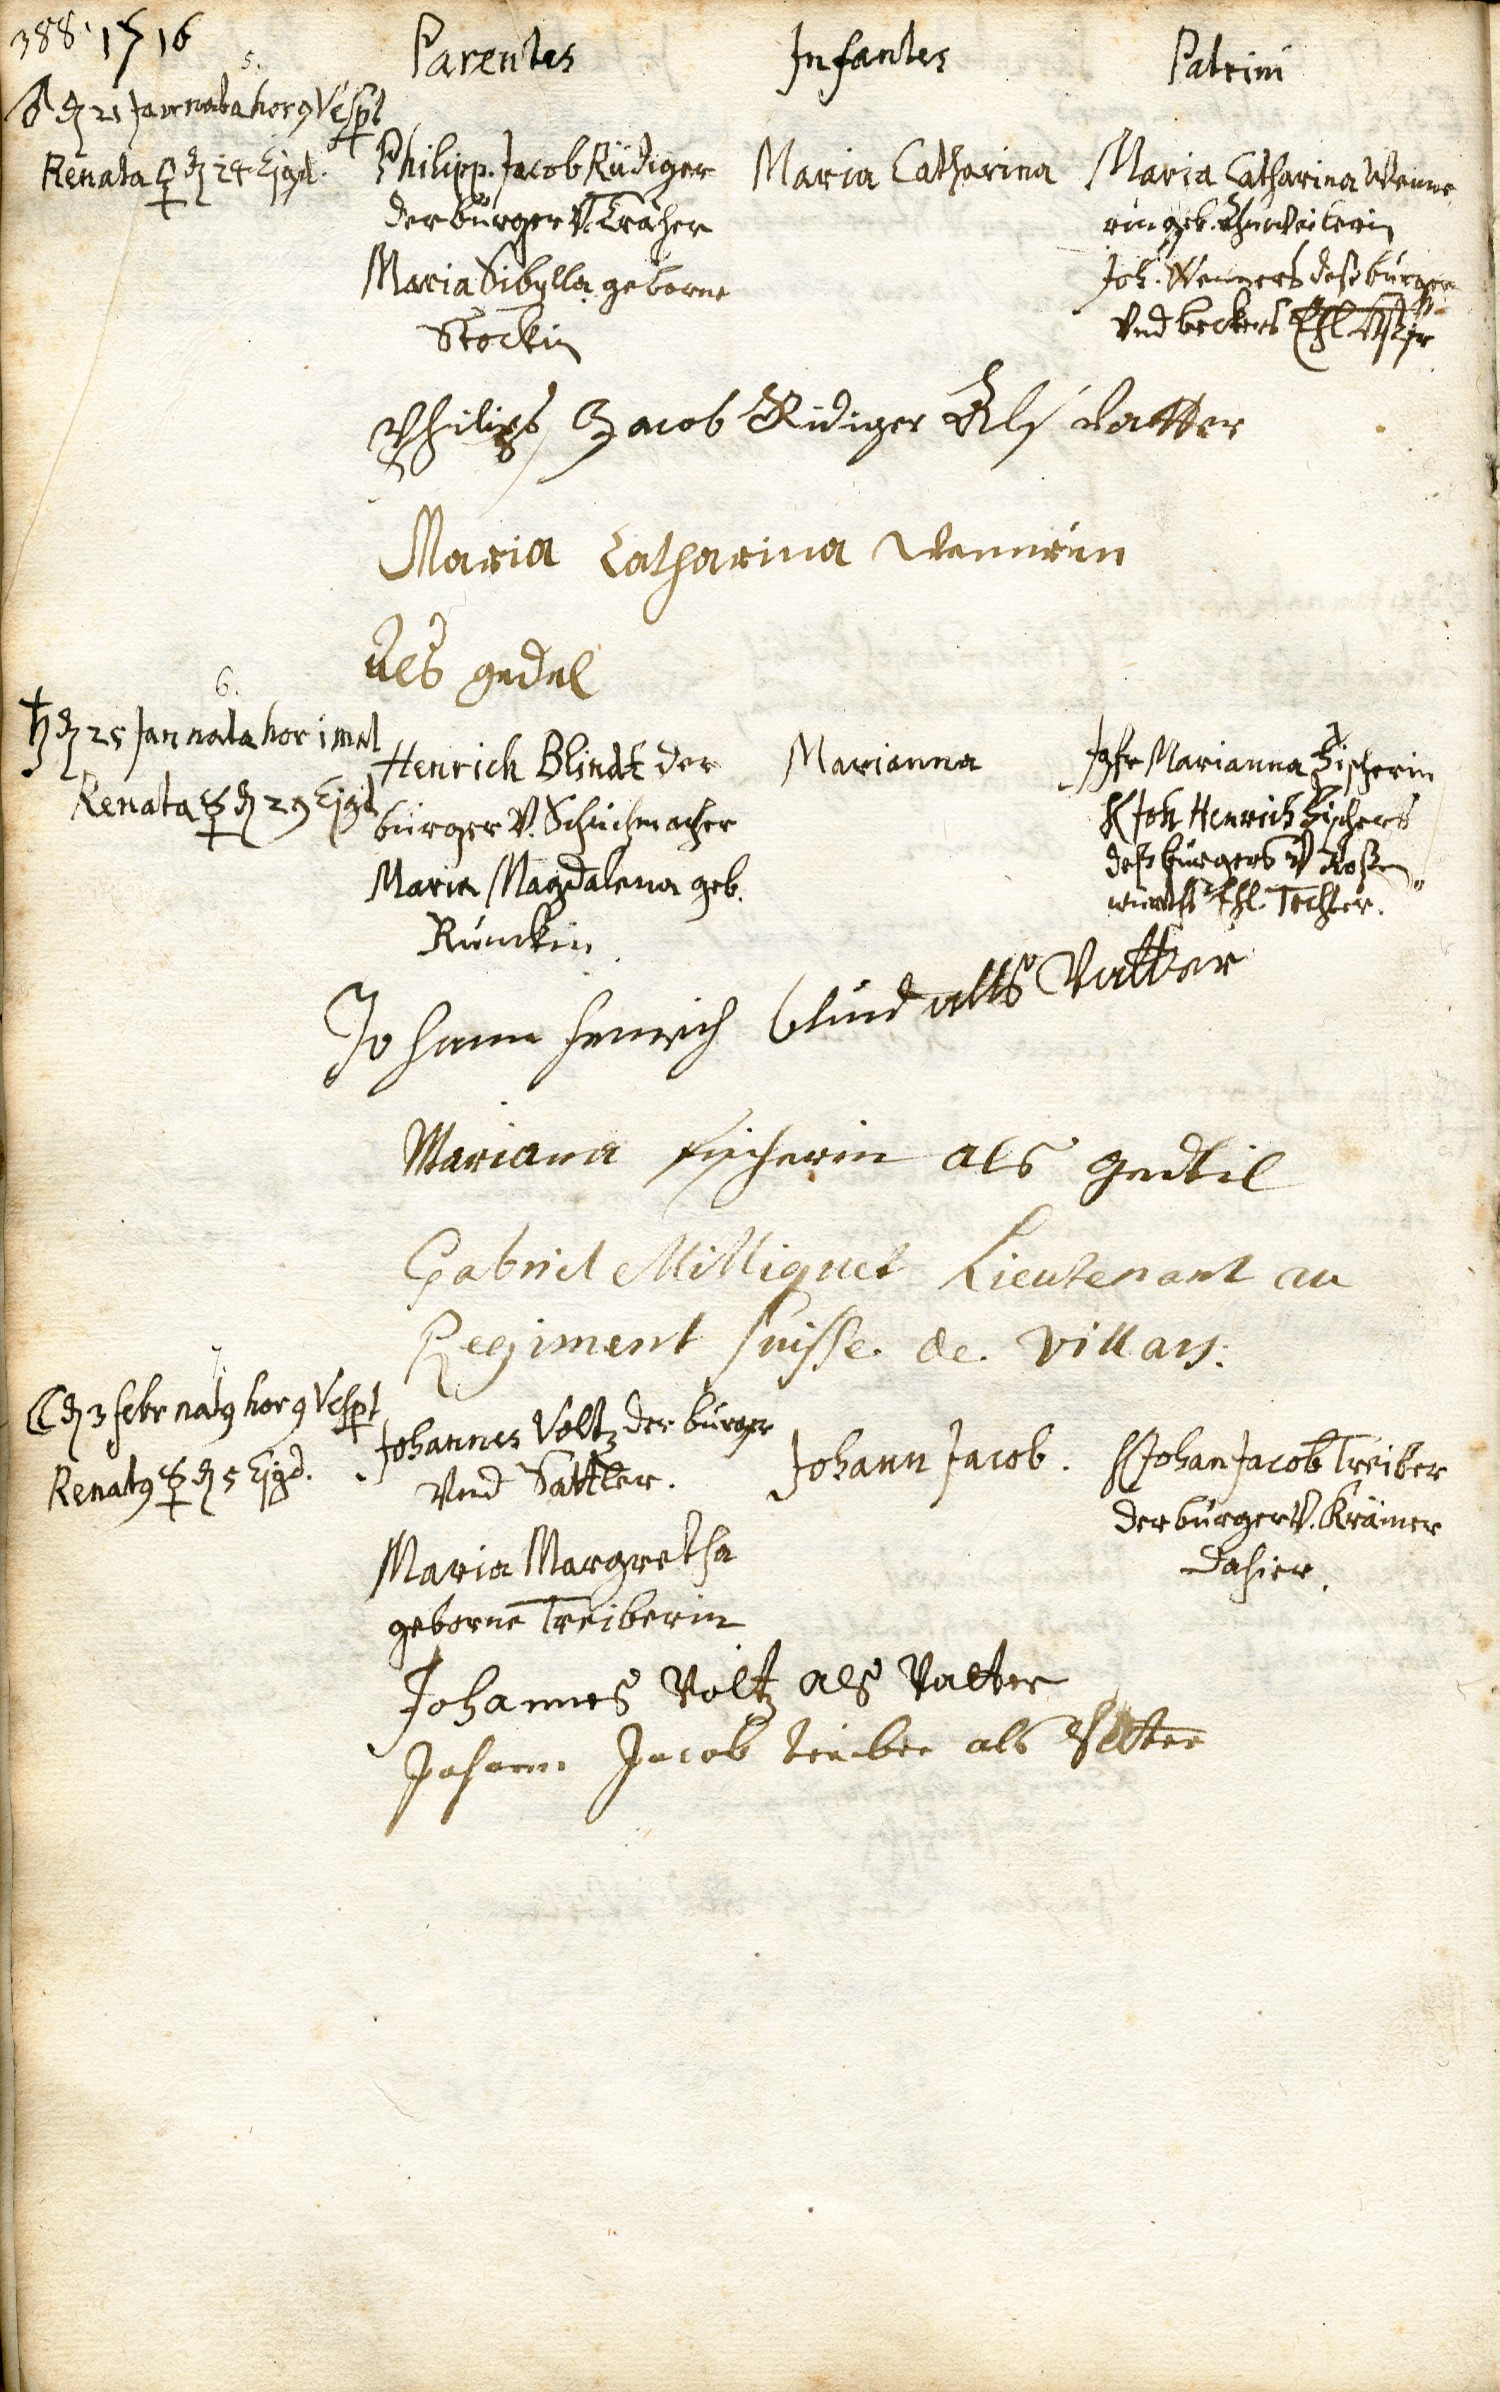 388. 1716
Parentes Infantes Patrini
5.
♂ d 21 Jan nata hor 9 Vespt
Renata ♀ d 24 Ejgd.
Philipp. Jacob Rüdiger
der bürger V. Träher
Maria Sibylla geborne
Stockin
Maria Catharina
Maria Catharina Wenne
rin geb.
Joh. Wenners deß bürgers
Vnd beckers Ehl
Philips Jacob Rüdiger Als vatter
Maria Catharina Wennrin
Als gedel
6.
♄ d 25 Jan nata hor 1 mat
Renata ☿ d 29 Ejgd
Henrich Blindt der
bürger V. Schuchmacher
Maria Magdalena geb.
Rünckin
Marianna
Jgfr Marianna Fischerin
H Joh Henrich Fischers
deß bürgers V Roßen
würths Ehl Tochter.
Johann Henrich blind alls Vatter
Mariana fischerin als gedtil
Gabriel Milliquet Lieutenant au
Regiment suisse de villars.
7
☾ d 3 febr nat9 hor 9 Vespt
Renat9 ☿ d 5 Ejgd.
Johannes Voltz der bürger
Vnd Sattler.
Maria Margretha
geborne Treiberin
Johann Jacob.
H Johan Jacob Treiber
der bürger V. Krämer
dahier.
Johannes Voltz als Vatter
Johann Jacob treiber als Pfetter